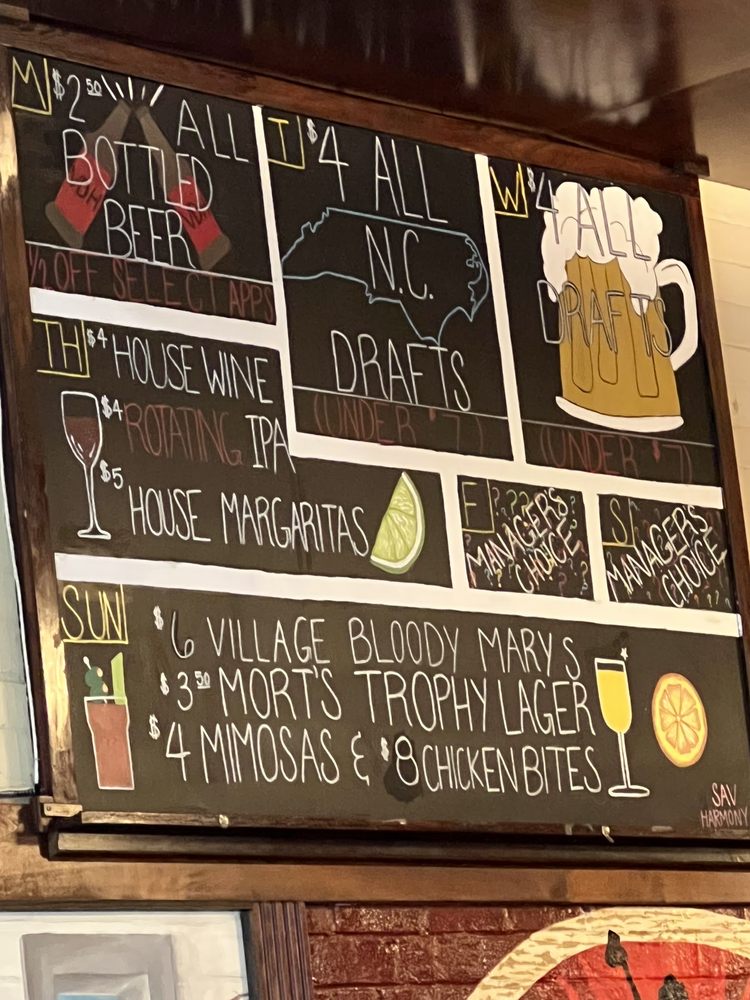 M $2.50 ALL
BOTTLED
BEER
1/2 OFF SELECT APPS
T $4 ALL
N.C.
DRAFTS
(UNDER $7)
W $4 ALL
DRAFTS
(UNDER $7)
TH $4 HOUSE WINE
$4 ROTATING IPA
$5 HOUSE MARGARITAS
F ????
MANAGERS
CHOICE
S
MANAGERS
CHOICE
SUN
$6 VILLAGE BLOODY MARYS
$3.50 MORT'S TROPHY LAGER
$4 MIMOSAS & $8 CHICKEN BITES
SAV
HARMONY